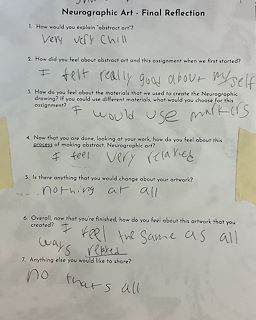 Neurographic Art - Final Reflection
1. How would you explain "abstract art"?
very very chill
2. How did you feel about abstract art and this assignment when we first started?
I felt really good about my self
3. How do you feel about the materials that we used to create the Neurographic
drawing? If you could use different materials, what would you choose for this
assignment? I would use markers
4. Now that you are done, looking at your work, how do you feel about this
process of making abstract, Neurographic art?
I feel very relaxed
5. Is there anything that you would change about your artwork?
nothing at all
6. Overall, now that you're finished, how do you feel about this artwork that you
created? I feel the same as all
ways relaxed
7. Anything else you would like to share?
no thats all